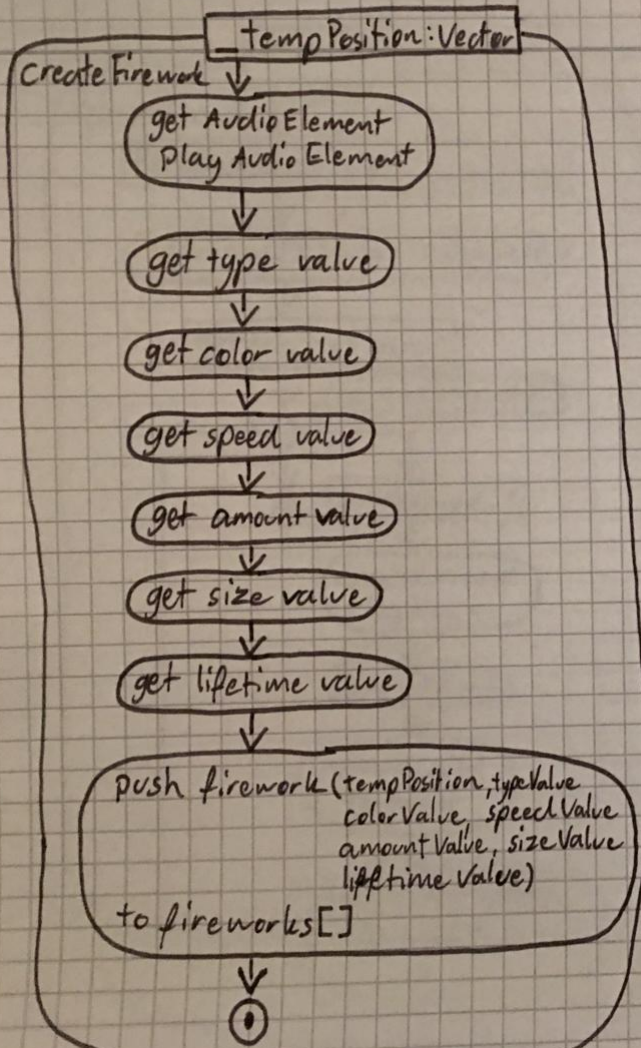 _tempPosition:Vector
createFirework
get AudioElement
Play Audio Element
get type value
get color value
get speed value
get amount value
get size value
get lifetime value
push firework(tempPosition, typeValue
colorValue, speedValue
amountValue, sizeValue
lifetimeValue)
to fireworks[]